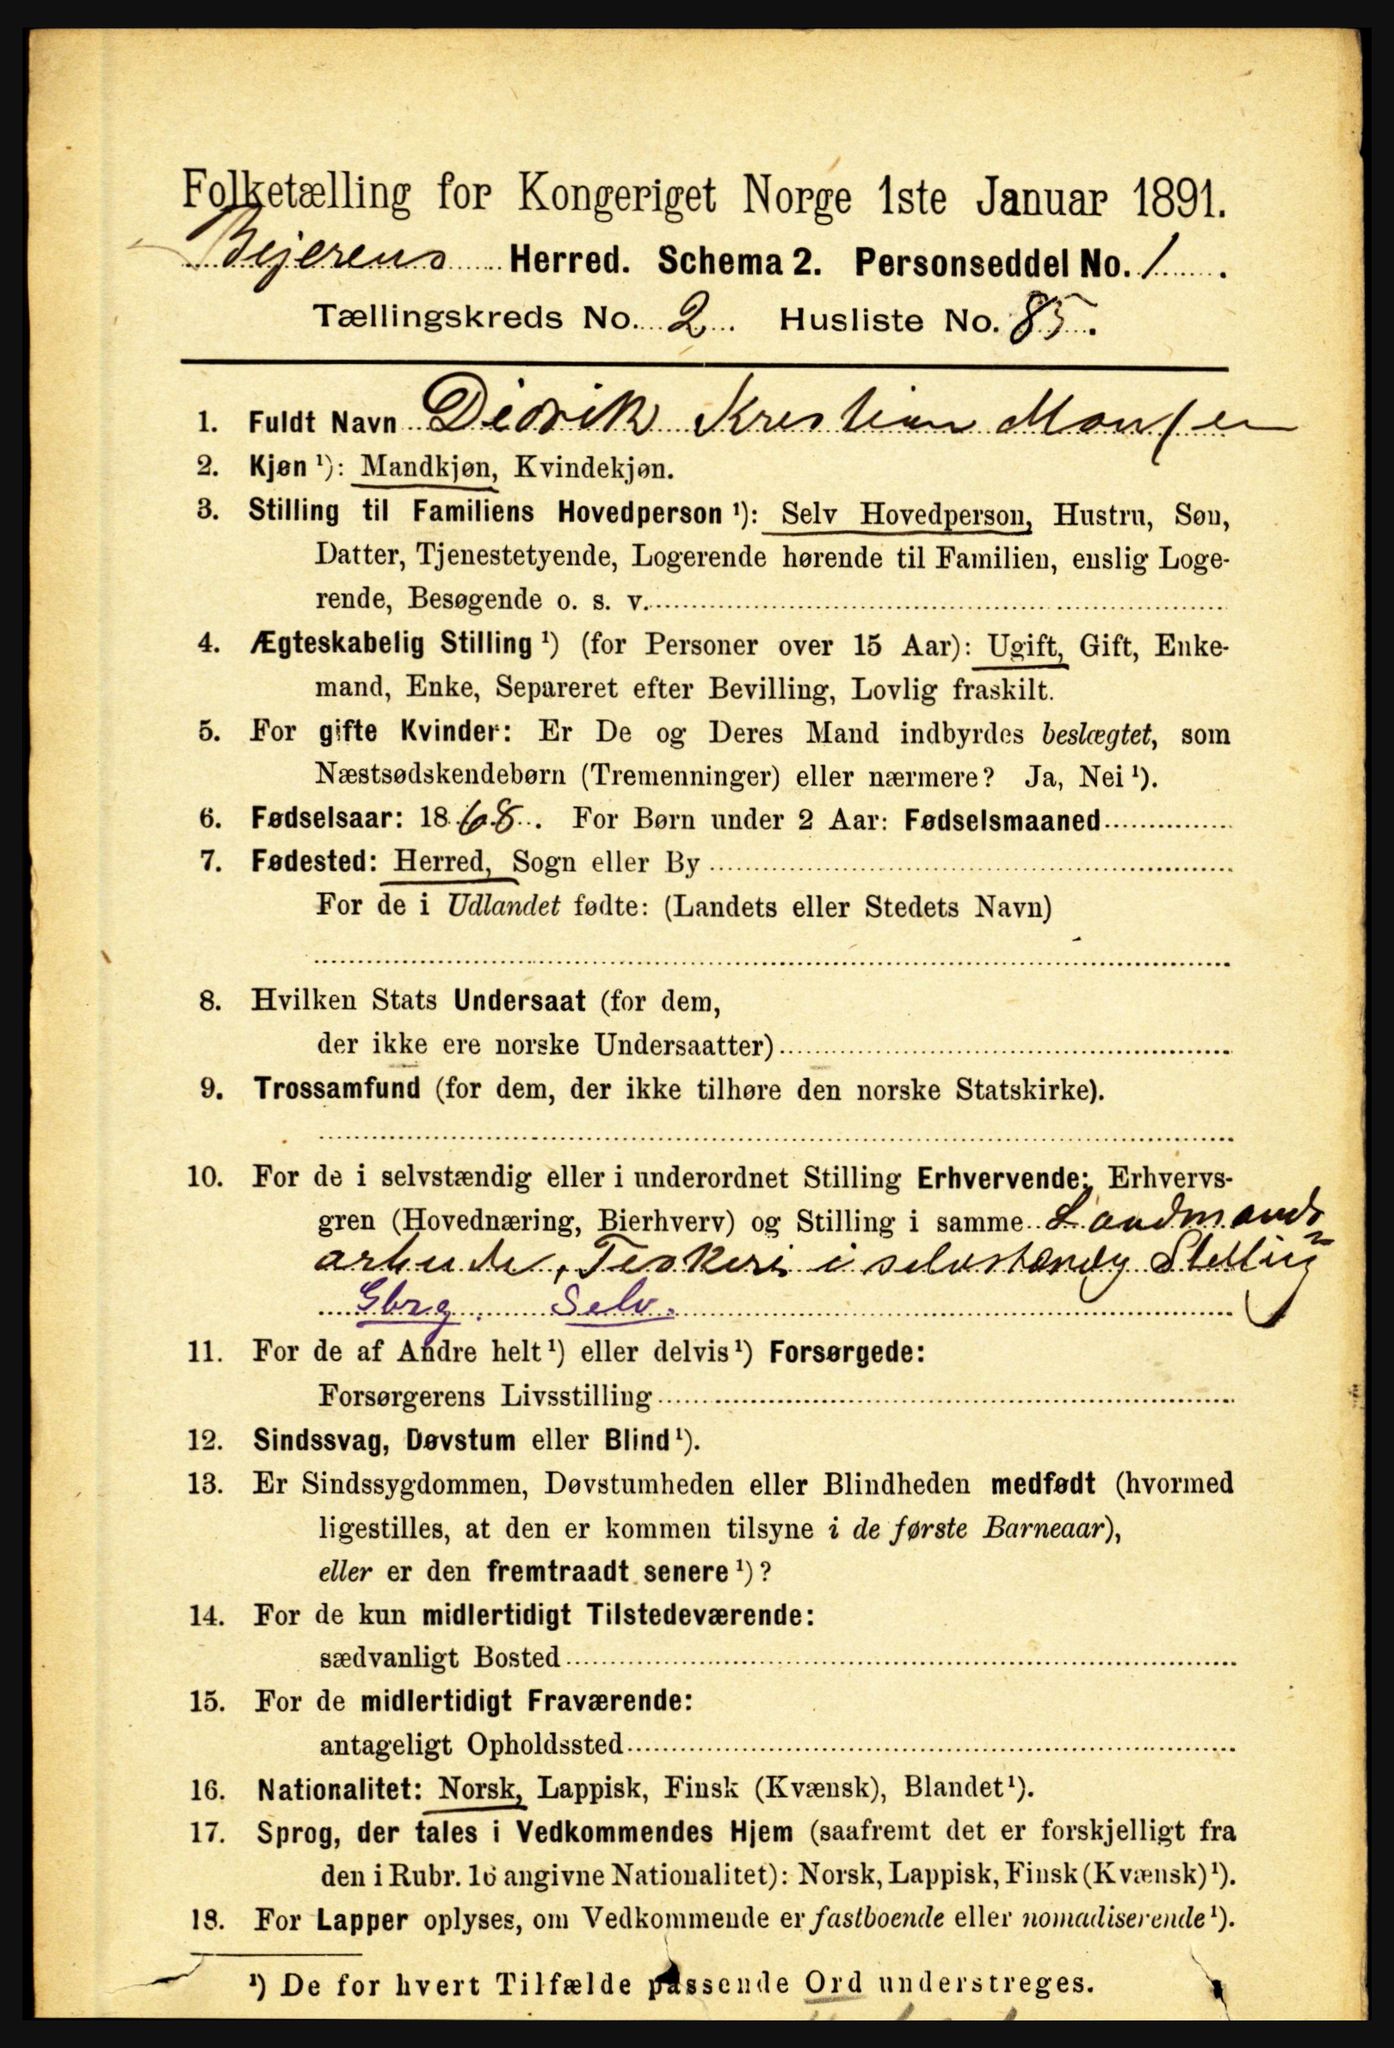 Folketælling for Kongeriget Norge 1ste Januar 1891.
Bejerens Herred. Schema 2. Personseddel No. 1.
Tællingskreds No. 2. Husliste No. 85.
1. Fuldt Navn Didrik Kristian Monsen
2. Kjøn ¹): Mandkjøn, Kvindekjøn.
3. Stilling til Familiens Hovedperson ¹): Selv Hovedperson, Hustru, Søn,
Datter, Tjenestetyende, Logerende hørende til Familien, enslig Loge-
rende, Besøgende o. s. v.
4. Ægteskabelig Stilling ¹) (for Personer over 15 Aar): Ugift, Gift, Enke-
mand, Enke, Separeret efter Bevilling, Lovlig fraskilt.
5. For gifte Kvinder: Er De og Deres Mand indbyrdes beslægtet, som
Næstsødskendebørn (Tremenninger) eller nærmere? Ja, Nei ¹).
6. Fødselsaar: 1868. For Børn under 2 Aar: Fødselsmaaned
7. Fødested: Herred, Sogn eller By
For de i Udlandet fødte: (Landets eller Stedets Navn)
8. Hvilken Stats Undersaat (for dem,
der ikke ere norske Undersaatter)
9. Trossamfund (for dem, der ikke tilhøre den norske Statskirke).
10. For de i selvstændig eller i underordnet Stilling Erhvervende: Erhvervs-
gren (Hovednæring, Bierhverv) og Stilling i samme Landmands
arbeide, Fiskeri i selvstændig Stelling
Gbrg. Selv.
11. For de af Andre helt ¹) eller delvis ¹) Forsørgede:
Forsørgerens Livsstilling
12. Sindssvag, Døvstum eller Blind ¹).
13. Er Sindssygdommen, Døvstumheden eller Blindheden medfødt (hvormed
ligestilles, at den er kommen tilsyne i de første Barneaar),
eller er den fremtraadt senere ¹)?
14. For de kun midlertidigt Tilstedeværende:
sædvanligt Bosted
15. For de midlertidigt Fraværende:
antageligt Opholdssted
16. Nationalitet: Norsk, Lappisk, Finsk (Kvænsk), Blandet ¹).
17. Sprog, der tales i Vedkommendes Hjem (saafremt det er forskjelligt fra
den i Rubr. 16 angivne Nationalitet): Norsk, Lappisk, Finsk (Kvænsk) ¹).
18. For Lapper oplyses, om Vedkommende er fastboende eller nomadiserende ¹).
¹) De for hvert Tilfælde passende Ord understreges.